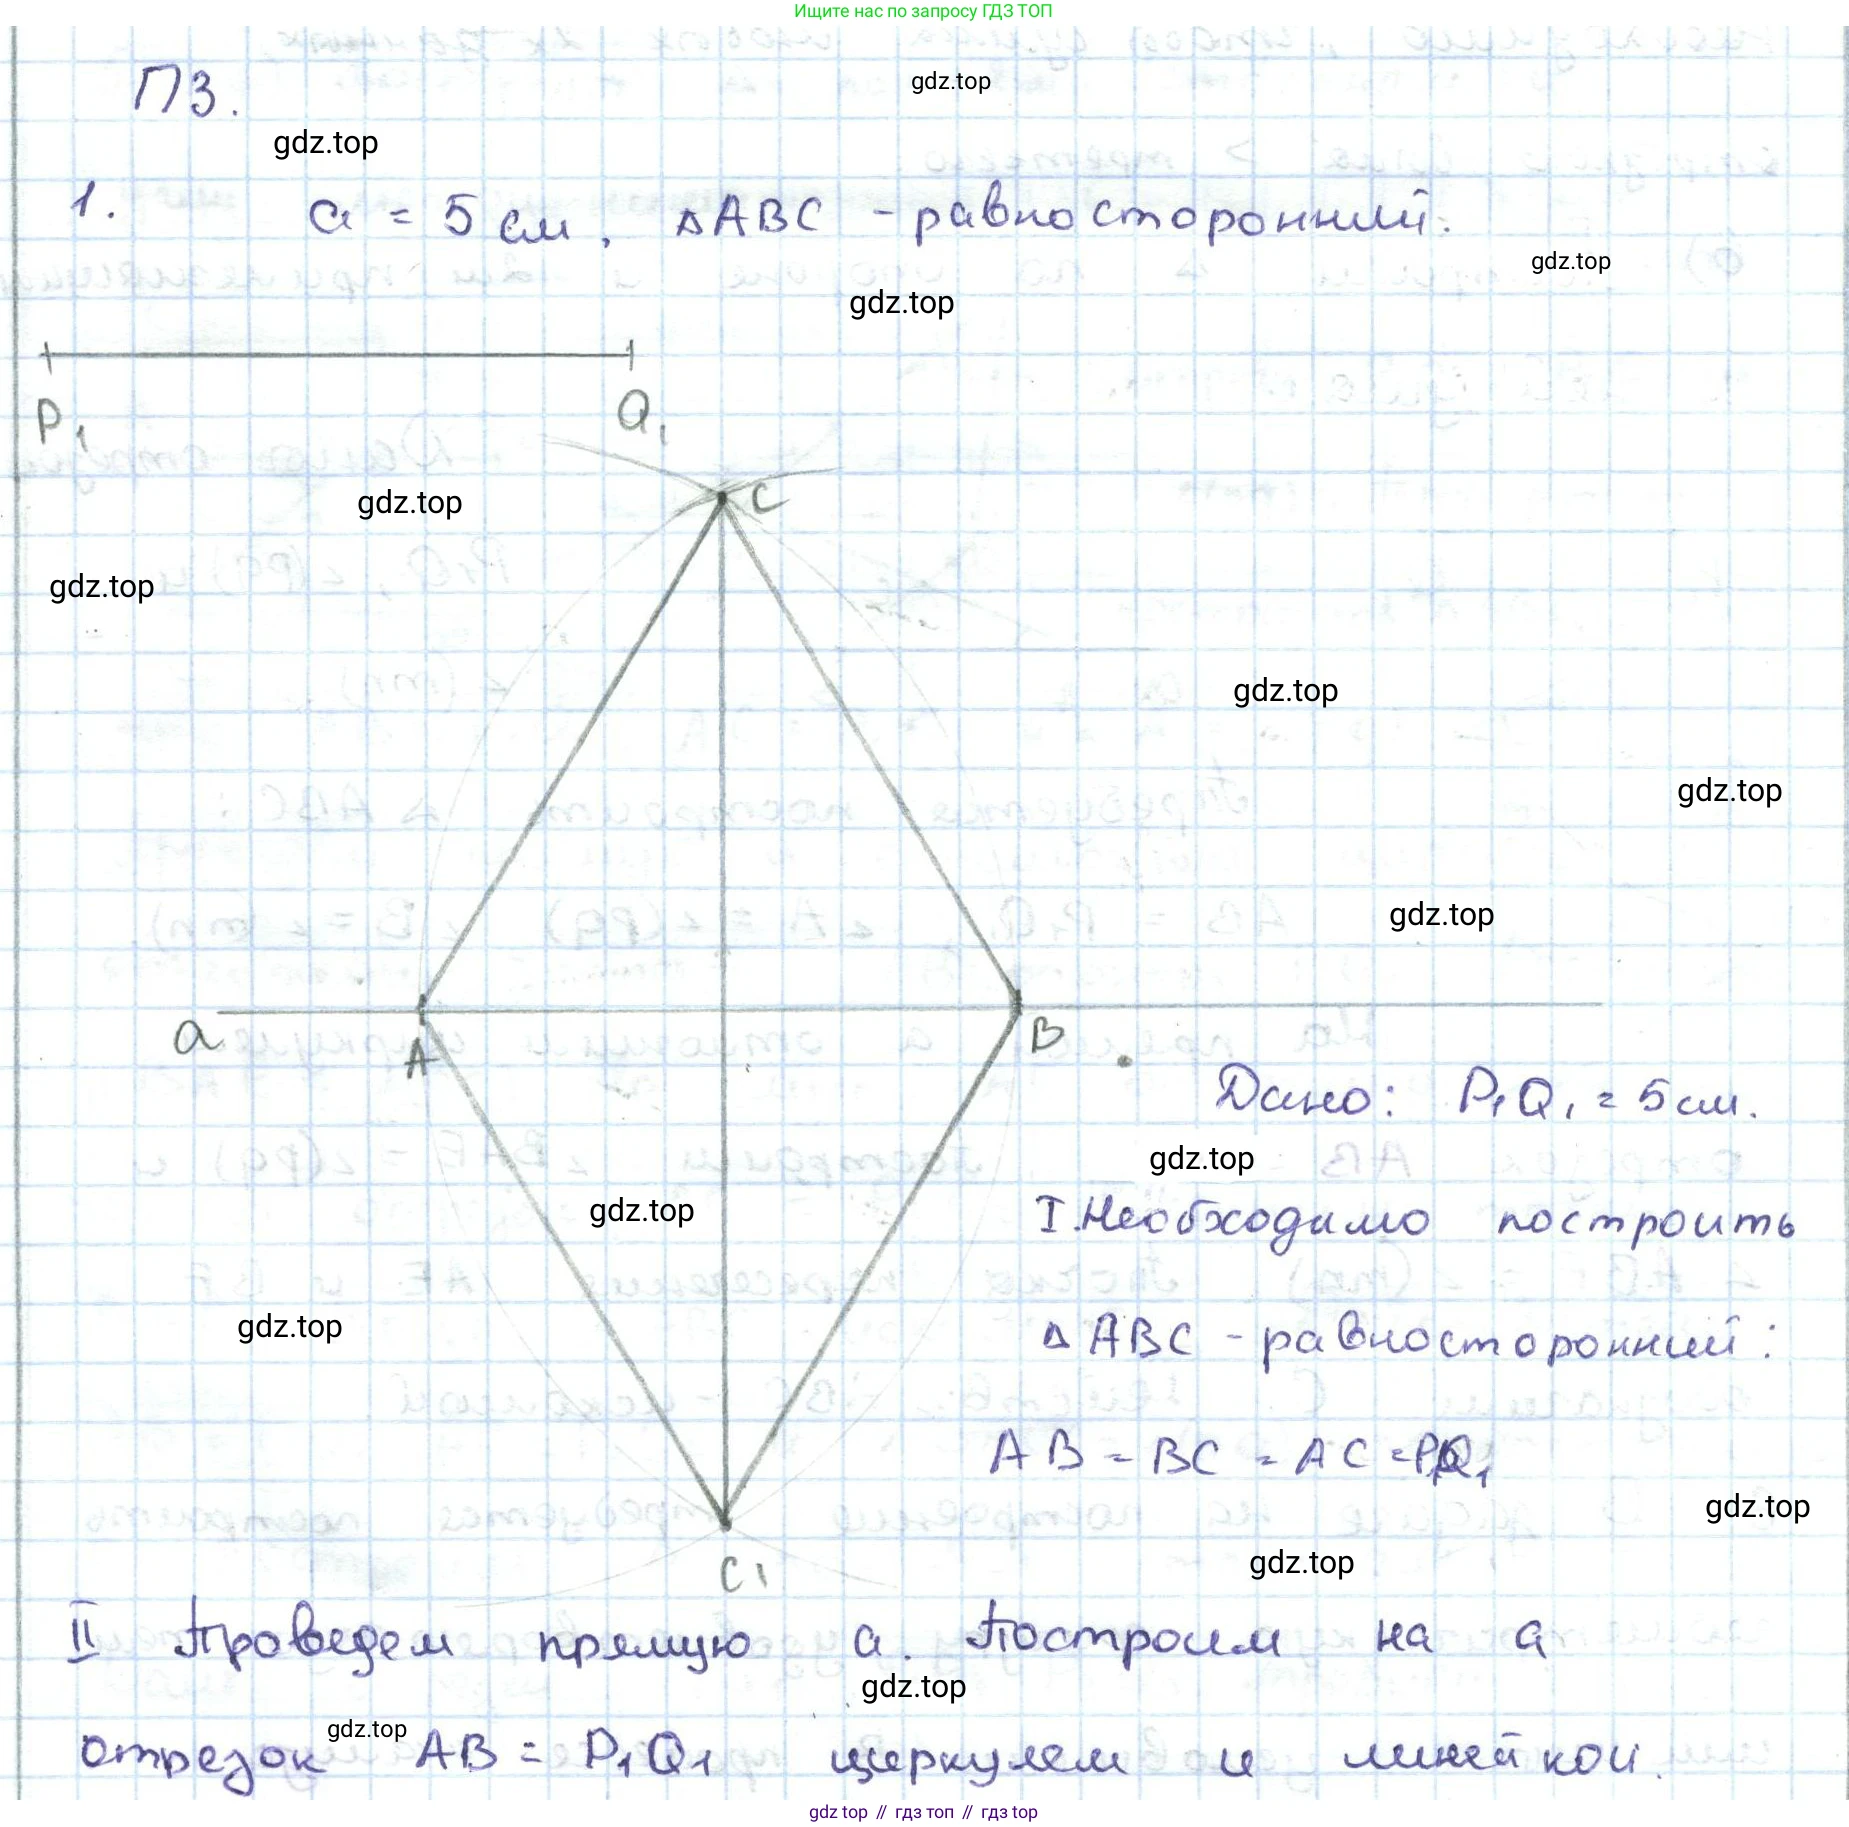 Ищите нас по запросу ГДЗ ТОП
П3.
gdz.top
gdz.top
1. a = 5 см, △ABC - равносторонний.
gdz.top
gdz.top
P₁ Q₁
gdz.top
C
gdz.top
gdz.top
gdz.top
gdz.top
a A B
Дано: P₁Q₁ = 5см.
gdz.top
gdz.top
I. Необходимо построить
gdz.top
△ABC - равносторонний:
AB = BC = AC = P₁Q₁
gdz.top
gdz.top
C₁
II Проведем прямую a. Построим на a
gdz.top
gdz.top
отрезок AB = P₁Q₁ циркулем и линейкой.
gdz top // гдз топ // гдз top